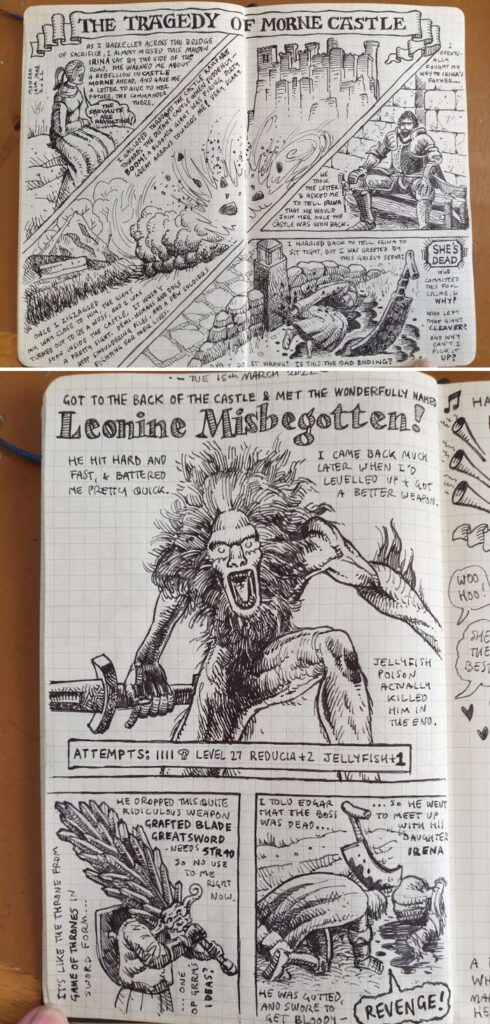 THE TRAGEDY OF MORNE CASTLE
AS I BARRELLED ACROSS THE BRIDGE
OF SACRIFICE, I ALMOST MISSED THIS MAIDEN
IRINA SAT BY THE SIDE OF THE
ROAD. SHE WARNED ME ABOUT
A REBELLION IN CASTLE
MORNE AHEAD, AND GAVE ME
A LETTER TO GIVE TO HER
FATHER, THE COMMANDER
THERE.
THE
SERVANTS
ARE
REVOLTING!
I GALLOPED THROUGH THE CASTLE RAMPARTS
TOWARDS THE DISTANT CASTLE WHEN SUDDENLY
BOOM! A BLOODY GIANT WAS FIRING
GREAT ARROWS TOWARDS ME! VERY SCARY.
ONCE I ZIGZAGGED
MY WAY CLOSE TO HIM THE GIANT
TURNED OUT TO BE A WUSS, AND I WAS
SOON INSIDE THE CASTLE. IT WAS
A PRETTY SIGHT. DEMI-HUMANS AND DOGS
ATOP SMOULDERING PILES & A FEW SOLDIERS
FIGHTING FOR THEIR LIVES.
EVENTU-
ALLY
FOUGHT MY
WAY TO IRINA'S
FATHER...
HE
TOOK
THE LETTER
& ASKED ME
TO TELL IRINA
THAT HE WOULD
JOIN HER ONCE THE
CASTLE WAS WON BACK.
I HURRIED BACK TO TELL IRINA TO
SIT TIGHT, BUT I WAS GREETED BY
THIS GRISLY SCENE:
SHE'S
DEAD
WHO
COMMITTED
THIS FOUL
CRIME, &
WHY?
WHO LEFT
THAT GIANT
CLEAVER?
AND WHY
CAN'T I
PICK IT
UP?
DO IT WRONG? IS THIS THE BAD ENDING?
- TUE 15th MARCH 2022 -
GOT TO THE BACK OF THE CASTLE & MET THE WONDERFULLY NAMED
Leonine Misbegotten!
HE HIT HARD AND
FAST, & BATTERED
ME PRETTY QUICK.
I CAME BACK MUCH
LATER WHEN I'D
LEVELLED UP & GOT
A BETTER WEAPON.
JELLYFISH
POISON
ACTUALLY
KILLED
HIM IN
THE END.
ATTEMPTS: IIII LEVEL 27 REDUCIA+2 JELLYFISH+1
HE DROPPED THIS QUITE
RIDICULOUS WEAPON
GRAFTED BLADE
GREATSWORD
NEEDS STR 40
SO NO USE
TO ME
RIGHT
NOW.
IT'S LIKE THE THRONE FROM
GAME OF THRONES IN
SWORD FORM...
...ONE
OF GRRM'S
IDEAS?
I TOLD EDGAR
THAT THE BOSS
WAS DEAD...
...SO HE WENT
TO MEET UP
WITH HIS
DAUGHTER
IRENA
HE WAS GUTTED,
AND SWORE TO
GET BLOODY-
REVENGE!
WOO
HOO!
SHE
THE
BES
HA